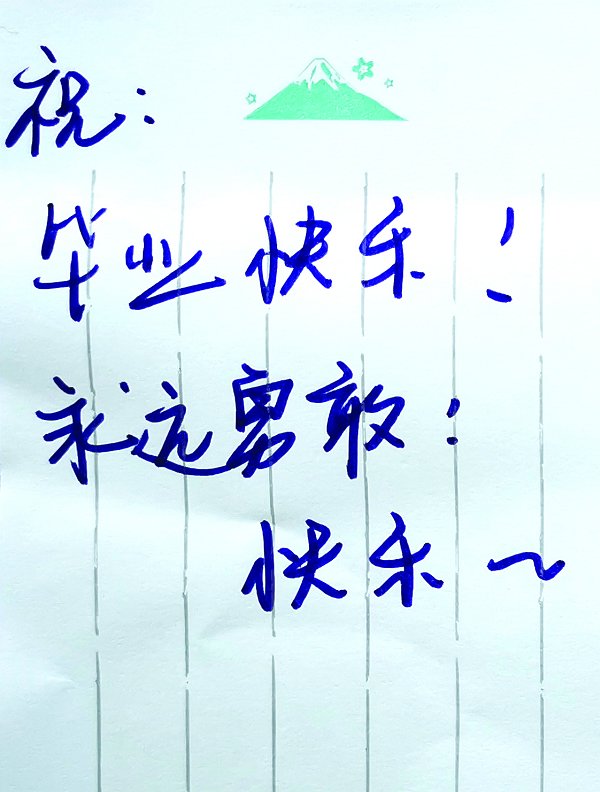 祝:
毕业快乐!
永远勇敢:
快乐~